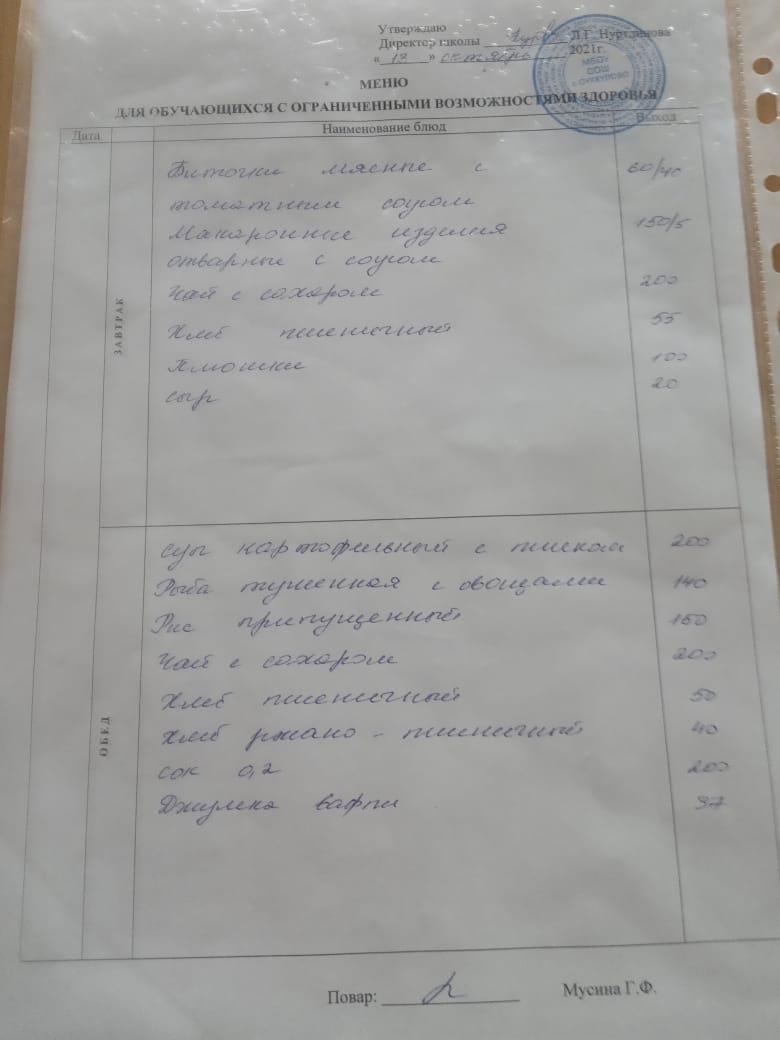 Утверждаю
Директор школы Л.Г. Нуртдинова
« 13 » октября 2021г.
МБОУ
СОШ
МЕНЮ
ДЛЯ ОБУЧАЮЩИХСЯ С ОГРАНИЧЕННЫМИ ВОЗМОЖНОСТЯМИ ЗДОРОВЬЯ
Дата Наименование блюд Выход
ЗАВТРАК
Биточки мясные с 60/40
томатным соусом
Макаронные изделия 150/5
отварные с соусом
Чай с сахаром 200
Хлеб пшеничный 55
Плюшки 100
сыр 20
ОБЕД
суп картофельный с мясом 200
Рыба тушенная с овощами 140
Рис припущенный 150
Чай с сахаром 200
Хлеб пшеничный 50
Хлеб ржано - пшеничный 40
сок 0,2 200
Джумка вафли 37
Повар: Мусина Г.Ф.